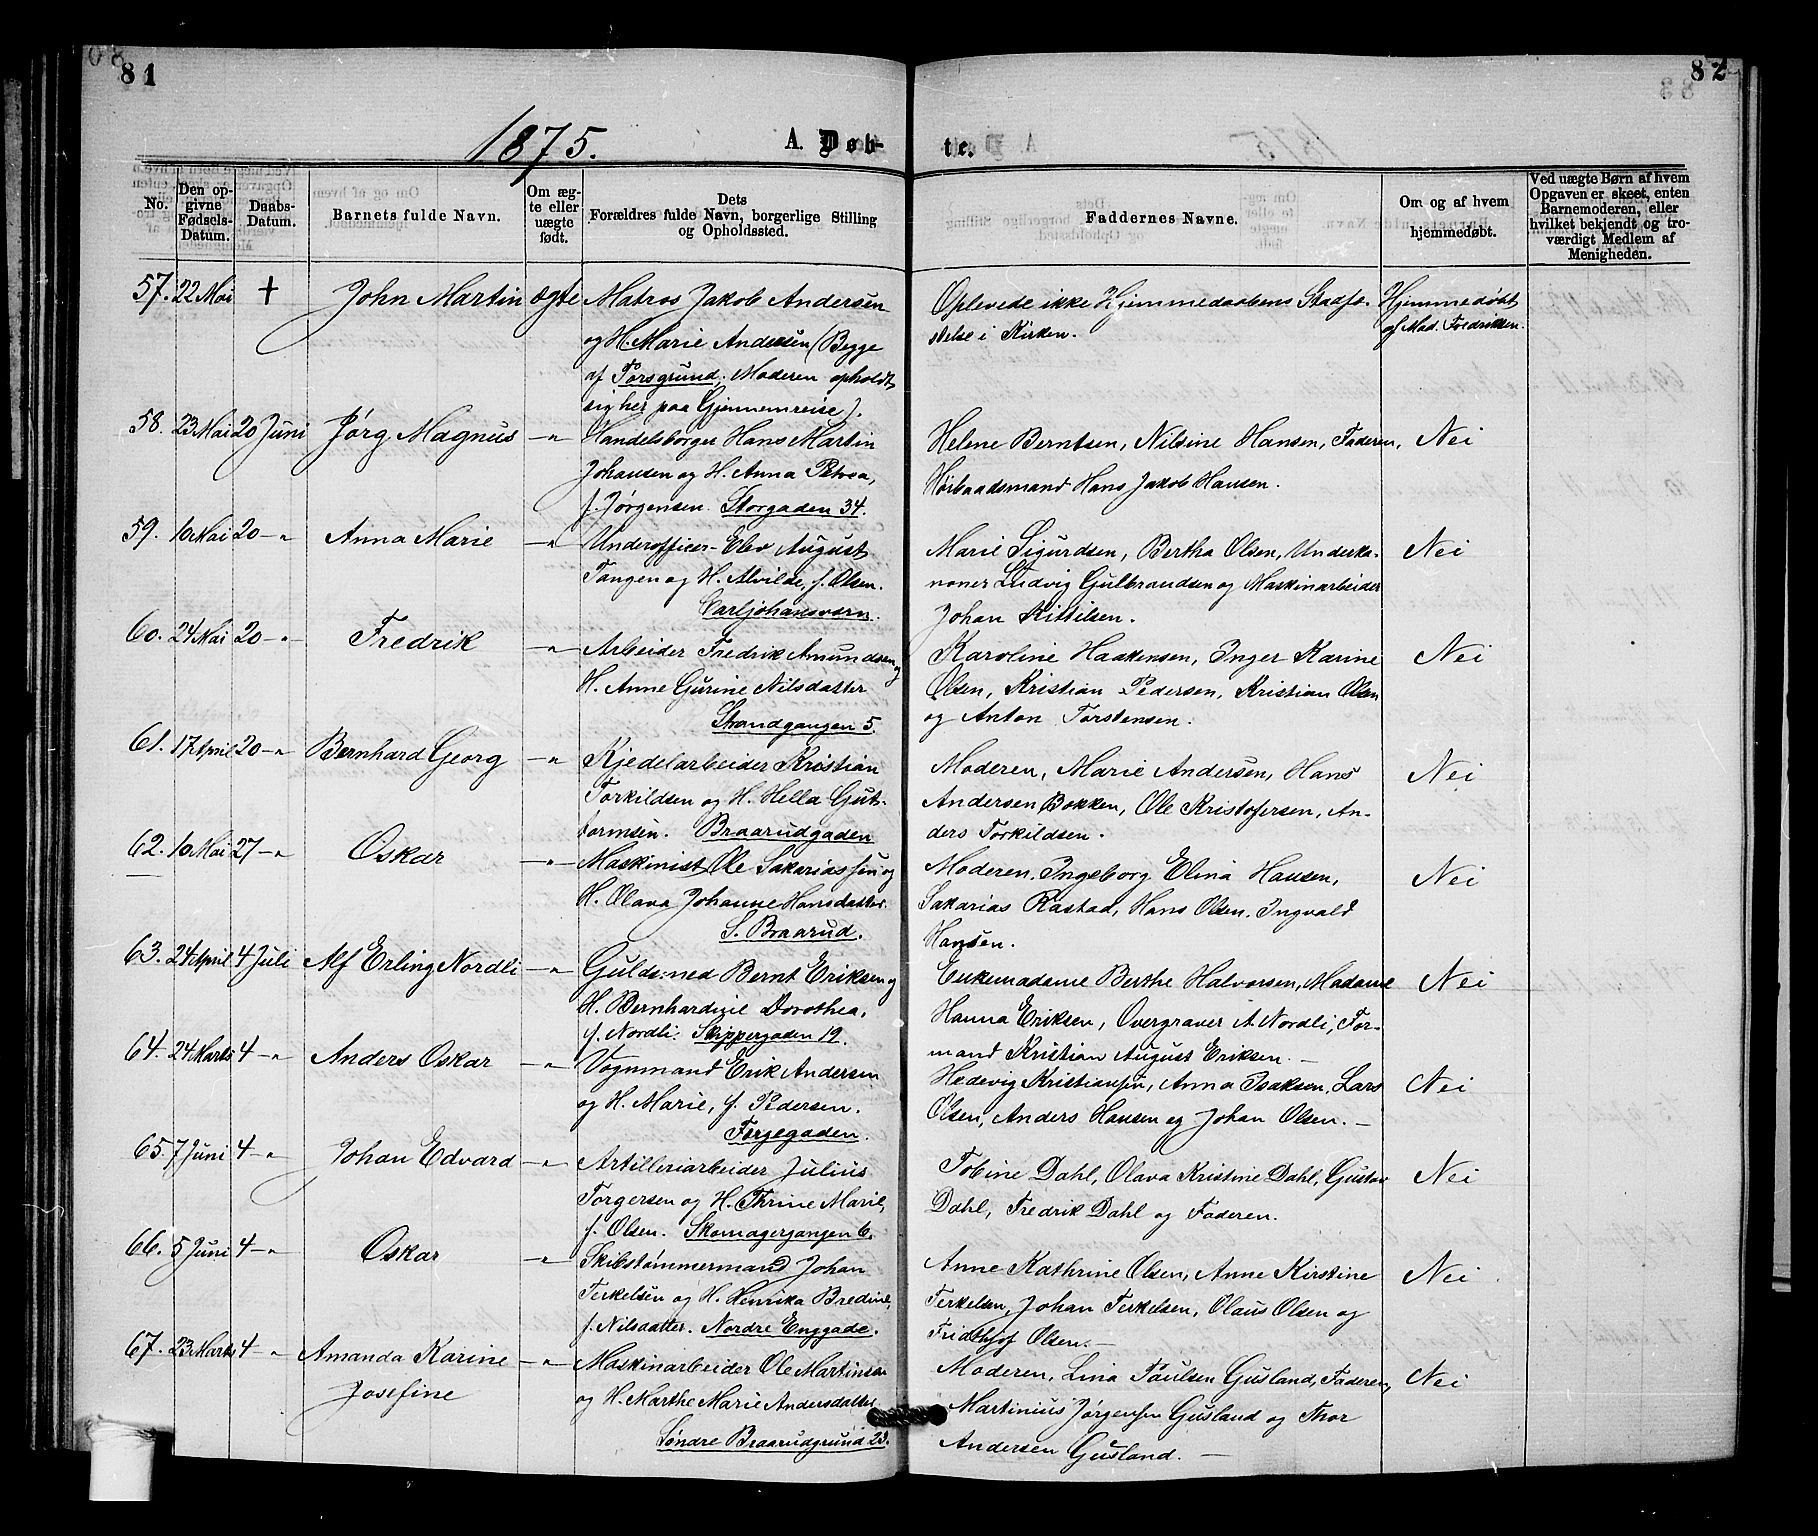 81
82
1875.
A. Døb-
te.
No.
Den op-
givne
Fødsels-
Datum.
Daabs-
Datum.
Barnets fulde Navn.
Om æg-
te eller
uægte
født.
Dets
Forældres fulde Navn, borgerlige Stilling
og Opholdssted.
Faddernes Navne.
Om og af hvem
hjemmedøbt.
Ved uægte Børn af hvem
Opgaven er skeet, enten
Barnemoderen, eller
hvilket bekjendt og tro-
værdigt Medlem af
Menigheden.
57. 22 Mai + John Martin ægte Matros Jakob Andersen
og H. Marie Andersen (Begge
af Porsgrund; Moderen opholdt
sig her paa Gjennemreise).
Oplevede ikke Hjemmedaabens Stadfæ-
stelse i Kirken.
Hjemmedøbt
af Mad. Fredriksen.
58. 23 Mai 20 Juni Jørg. Magnus -"- Handelsborger Hans Martin
Johansen og H. Anna Petrea,
f. Jørgensen. Storgaden 34.
Helene Berntsen, Nilsine Hansen, Faderen,
Hans Jakob Hansen.
Nei
59. 10 Mai 20 -"- Anna Marie -"- Underofficer-Elev August
Tangen og H. Alvilde, f. Olsen.
Carljohansværn.
Marie Sigurdsen, Bertha Olsen, Underka-
noner Ludvig Gulbrandsen og Maskinarbeider
Johan Kittilsen.
Nei
60. 24 Mai 20 -"- Fredrik -"- Arbeider Fredrik Amundsen og
H. Anne Gurine Nilsdatter
Strandgangen 5.
Karoline Haakensen, Inger Karine
Olsen, Kristian Pedersen, Kristian Olsen
og Anton Torstensen.
Nei
61. 17 April 20 -"- Bernhard Georg -"- Kjedelarbeider Kristian
Torkildsen og H. Hella Gut-
tormsen. Braarudgaden
Moderen, Marie Andersen, Hans
Andersen Bokken, Ole Kristofersen, An-
ders Torkildsen.
Nei
62. 10 Mai 27 -"- Oskar -"- Maskinist Ole Sakariassen og
H. Olava Johanne Hansdatter.
S. Braarud.
Moderen, Ingeborg Elina Hansen,
Sakarias Rastad, Hans Olsen, Ingvald
Hansen.
Nei
63. 24 April 4 Juli Alf Erling Nordli -"- Guldsmed Bernt Eriksen og
H. Bernhardine Dorothea,
f. Nordli. Skippergaden 19.
Enkemadame Berthe Halvorsen, Madame
Hanna Eriksen, Overgraver A. Nordli, For-
mand Kristian August Eriksen. -
Nei
64. 24 Marts 4 -"- Anders Oskar -"- Vognmand Erik Andersen
og H. Marie, f. Pedersen.
Færgegaden.
Hedevig Kristiansen, Anna Isaksen, Lars
Olsen, Anders Hansen og Johan Olsen. -
Nei
65. 7 Juni 4 -"- Johan Edvard -"- Artilleriarbeider Julius
Torgersen og H. Thrine Marie,
f. Olsen. Skomagergangen 6.
Tobine Dahl, Olava Kristine Dahl, Gustav
Dahl, Fredrik Dahl og Faderen.
Nei
66. 5 Juni 4 -"- Oskar -"- Skibstømmermand Johan
Terkelsen og H. Henrika Bredine,
f. Nilsdatter. Nordre Enggade.
Anne Kathrine Olsen, Anne Kirstine
Terkelsen, Johan Terkelsen, Olaus Olsen og
Fridthjof Olsen. -
Nei
67. 23 Marts 4 -"- Amanda Karine -"- Maskinarbeider Ole Martinsen
Josefine
og H. Marthe Marie Andersdatter
Søndre Braarudgrund 23.
Moderen, Lina Paulsen Gusland, Faderen,
Martinius Jørgensen Gusland og Thor
Andersen Gusland. -
Nei